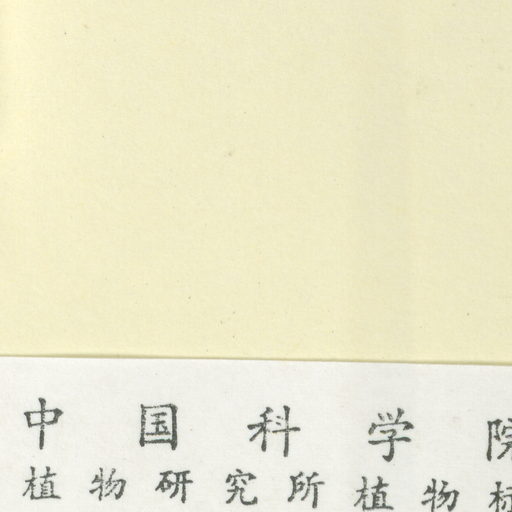 中国科学院
植物研究所植物标